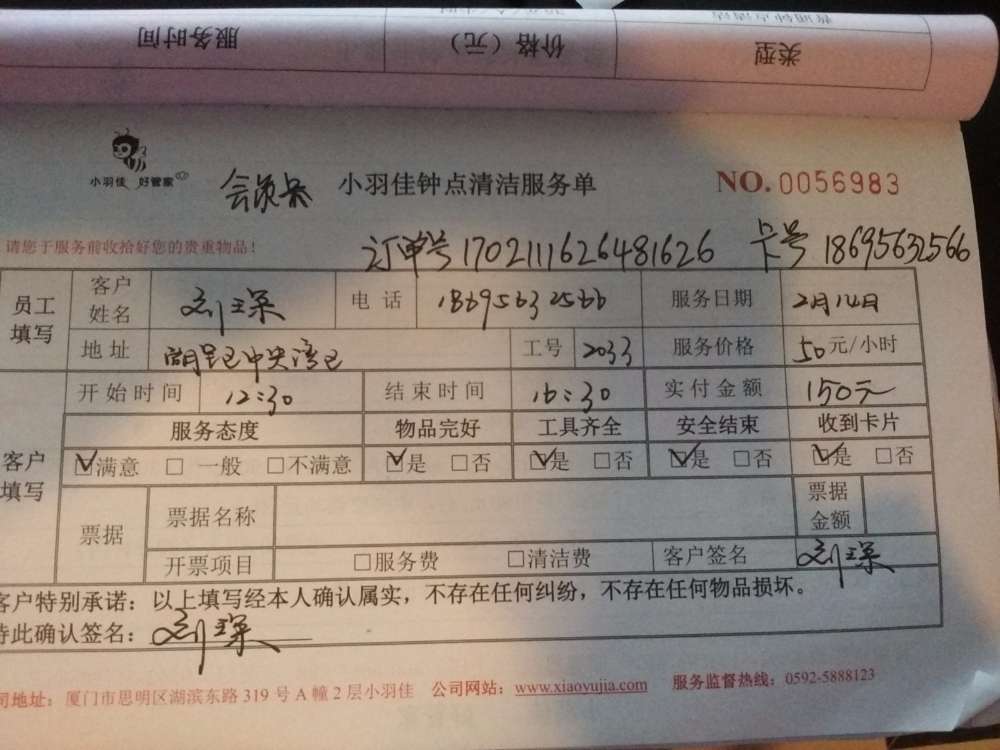 服务时间 价格（元） 类型
小羽佳 好管家
小羽佳钟点清洁服务单 NO. 0056983
请您于服务前收拾好您的贵重物品！
订单号 1702111626481626 卡号 18695632566
员工填写 客户姓名 电话 18695632566 服务日期 2月14日
地址 工号 2033 服务价格 50元/小时
开始时间 12:30 结束时间 16:30 实付金额 150元
服务态度 物品完好 工具齐全 安全结束 收到卡片
客户填写 ☑满意 □一般 □不满意 ☑是 □否 ☑是 □否 ☑是 □否 ☑是 □否
票据 票据名称 票据金额
开票项目 □服务费 □清洁费 客户签名
客户特别承诺：以上填写经本人确认属实，不存在任何纠纷，不存在任何物品损坏。
特此确认签名：
司地址：厦门市思明区湖滨东路319号A幢2层小羽佳 公司网站：www.xiaoyujia.com 服务监督热线：0592-5888123